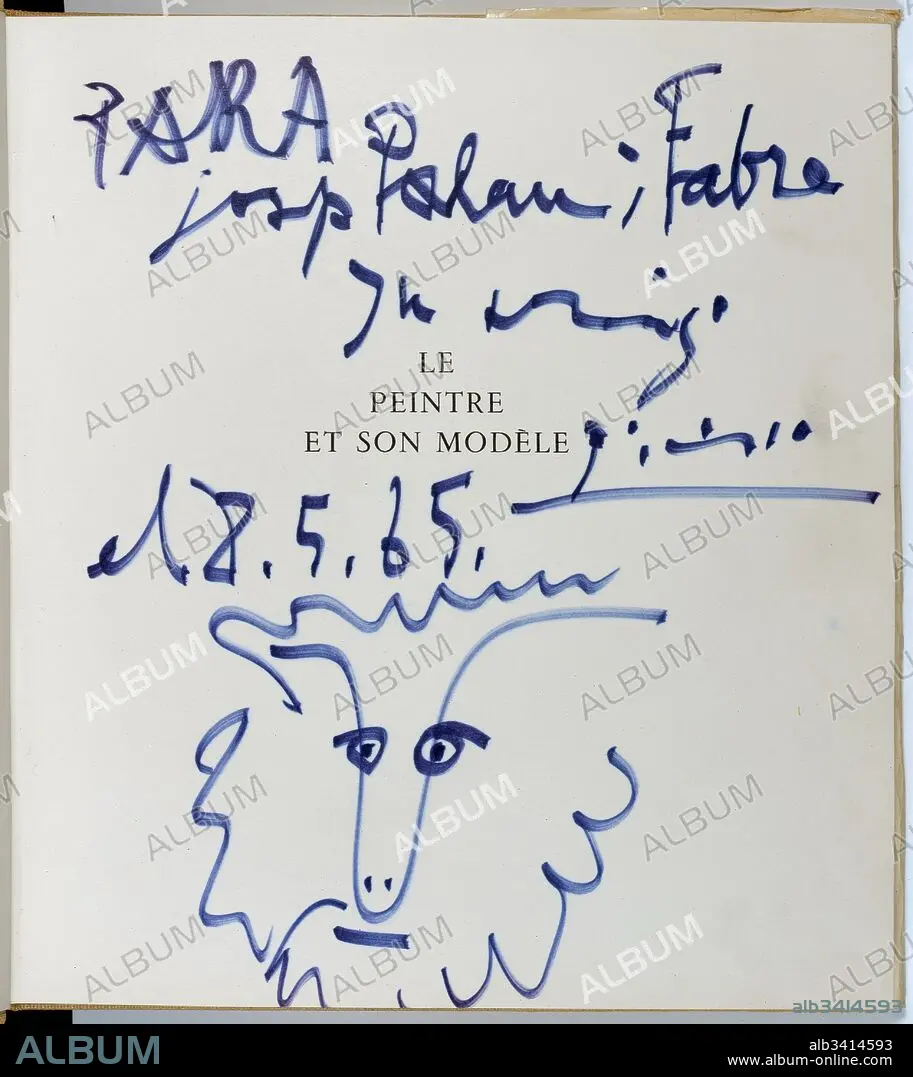 PARA
josep Palau i Fabre
su amigo
LE
PEINTRE
ET SON MODÈLE
Picasso
el 8.5.65.
ALBUM
alb3414593
ALBUM
alb3414593
www.album-online.com